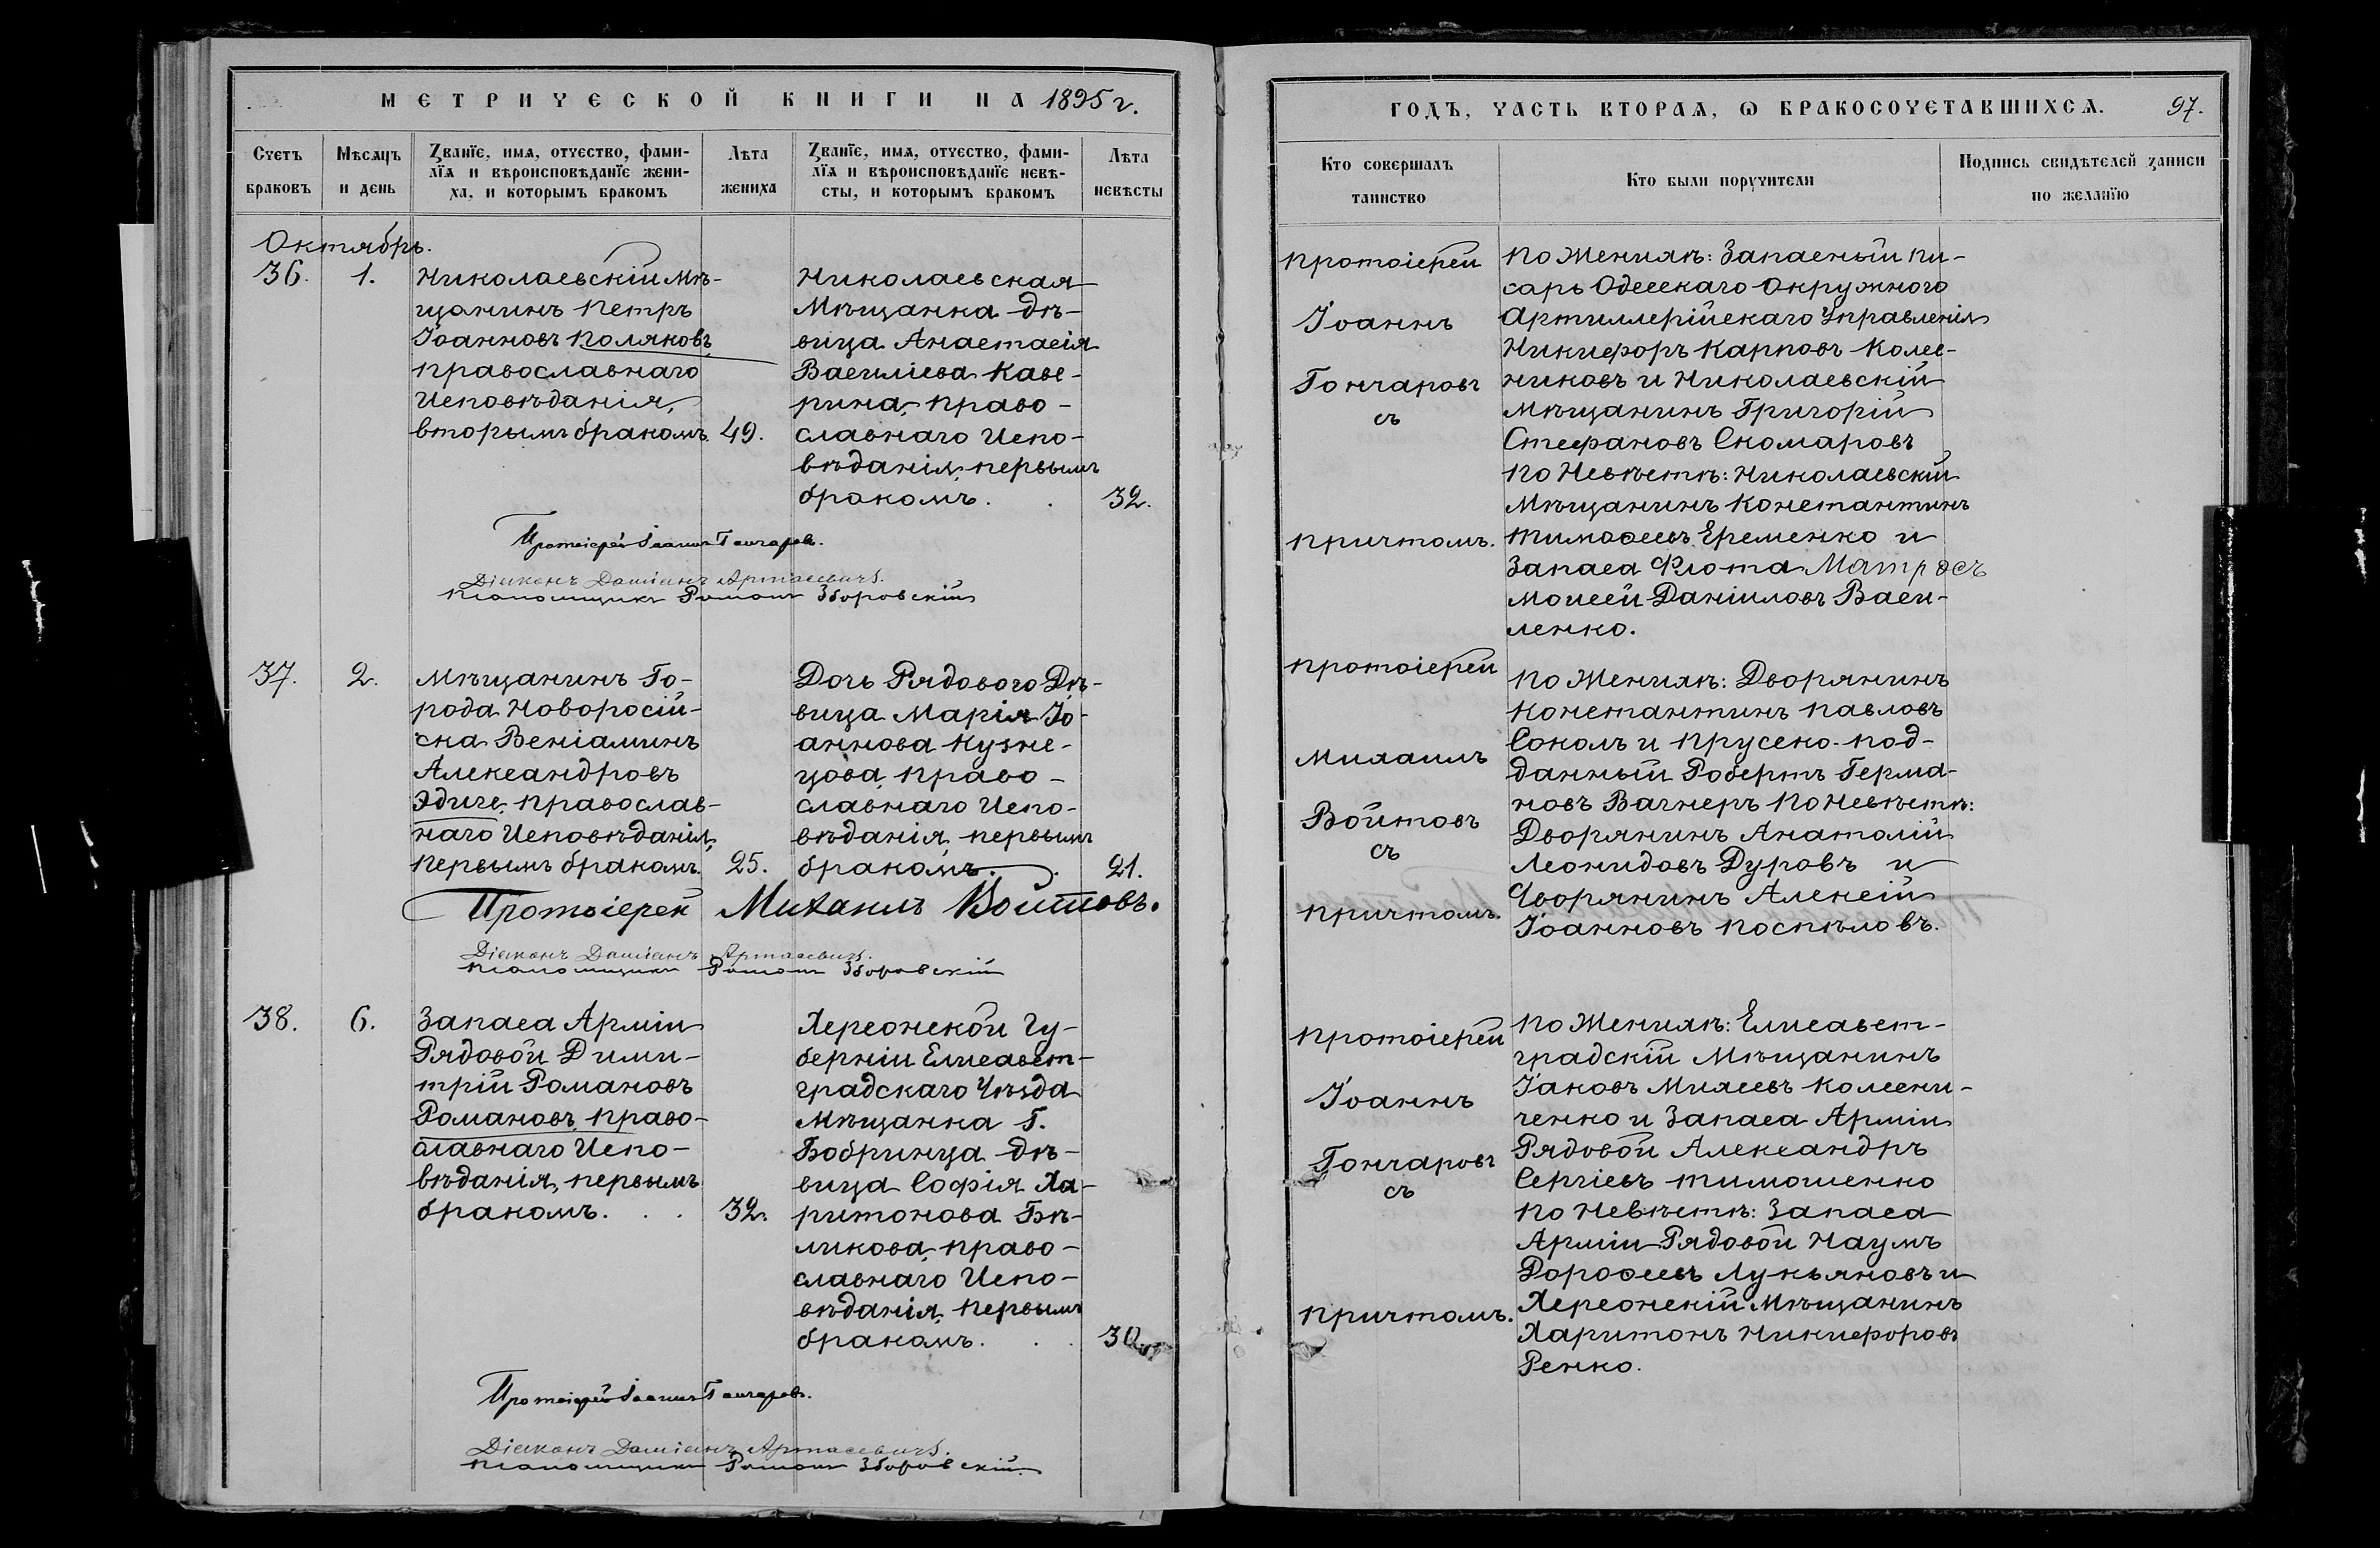 МЕТРИЧЕСКОЙ КНИГИ НА 1895 г.
Счетъ браковъ
Мѣсяцъ и день
Званїе, имя, отчество, фами-
лїя и вѣроисповѣданїе жени-
ха, и которымъ бракомъ
Лѣта жениха
Званїе, имя, отчество, фами-
лїя и вѣроисповѣданїе невѣ-
сты, и которымъ бракомъ
Лѣта невѣсты
Октябрь.
36.
1.
Николаевскій Мѣ-
щанинъ Петръ
Іоанновъ Поляковъ,
православнаго
Исповѣданія,
вторымъ бракомъ. 49.
Николаевская
Мѣщанка дѣ-
вица Анастасія
Василіева Каве-
рина, право-
славнаго Испо-
вѣданія, первымъ
бракомъ. . 32.
Протоіерей Іоаннъ Гончаровъ.
Діаконъ Даміанъ Артасевичъ.
Псаломщикъ Романъ Зборовскій
37.
2.
Мѣщанинъ Го-
рода Новоросій-
ска Веніаминъ
Александровъ
Эдиге, православ-
наго Исповѣданія,
первымъ бракомъ. 25.
Дочь Рядового Дѣ-
вица Марія Іо-
аннова Кузне-
цова, право-
славнаго Испо-
вѣданія, первымъ
бракомъ. . 21.
Протоіерей Михаилъ Войтовъ.
Діаконъ Даміанъ Артасевичъ.
Псаломщикъ Романъ Зборовскій
38.
6.
Запаса Арміи
Рядовой Дими-
трій Романовъ
Романовъ, право-
славнаго Испо-
вѣданія, первымъ
бракомъ. . . 32.
Херсонской Гу-
берніи Елисавет-
градскаго Уѣзда
Мѣщанка Г.
Бобринца дѣ-
вица Софія Ха-
ритонова Бѣ-
ликова, право-
славнаго Испо-
вѣданія, первымъ
бракомъ. . . 30.
Протоіерей Іоаннъ Гончаровъ.
Діаконъ Даміанъ Артасевичъ.
Псаломщикъ Романъ Зборовскій.
ГОДЪ, ЧАСТЬ ВТОРАЯ, Ѡ БРАКОСОЧЕТАВШИХСЯ. 97.
Кто совершалъ таинство
Кто были поручители
Подпись свидѣтелей записи
по желанїю
Протоіерей
Іоаннъ
Гончаровъ
съ
причтомъ.
По Женихѣ: Запасный пи-
сарь Одесскаго Окружного
Артиллерійскаго Управленія
Никифоръ Карповъ Колес-
никовъ и Николаевскій
Мѣщанинъ Григорій
Стефановъ Скомаровъ
По Невѣстѣ: Николаевскій
Мѣщанинъ Константинъ
Тимоѳеевъ Еременко и
Запаса Флота Матросъ
Моисей Даніиловъ Васи-
ленко.
Протоіерей
Михаилъ
Войтовъ
съ
причтомъ.
По Женихѣ: Дворянинъ
Константинъ Павловъ
Соколъ и Прусско-под-
данный Робертъ Герма-
новъ Вагнеръ По Невѣстѣ:
Дворянинъ Анатолій
Леонидовъ Дуровъ и
Дворянинъ Алексій
Іоанновъ Поспѣловъ.
Протоіерей
Іоаннъ
Гончаровъ
съ
причтомъ.
По Женихѣ: Елисавет-
градскій Мѣщанинъ
Іаковъ Михеевъ Колесни-
ченко и Запаса Арміи
Рядовой Александръ
Сергіевъ Тимошенко
По Невѣстѣ: Запаса
Арміи Рядовой Наумъ
Дороѳеевъ Лукьяновъ и
Херсонскій Мѣщанинъ
Харитонъ Никифоровъ
Ренко.